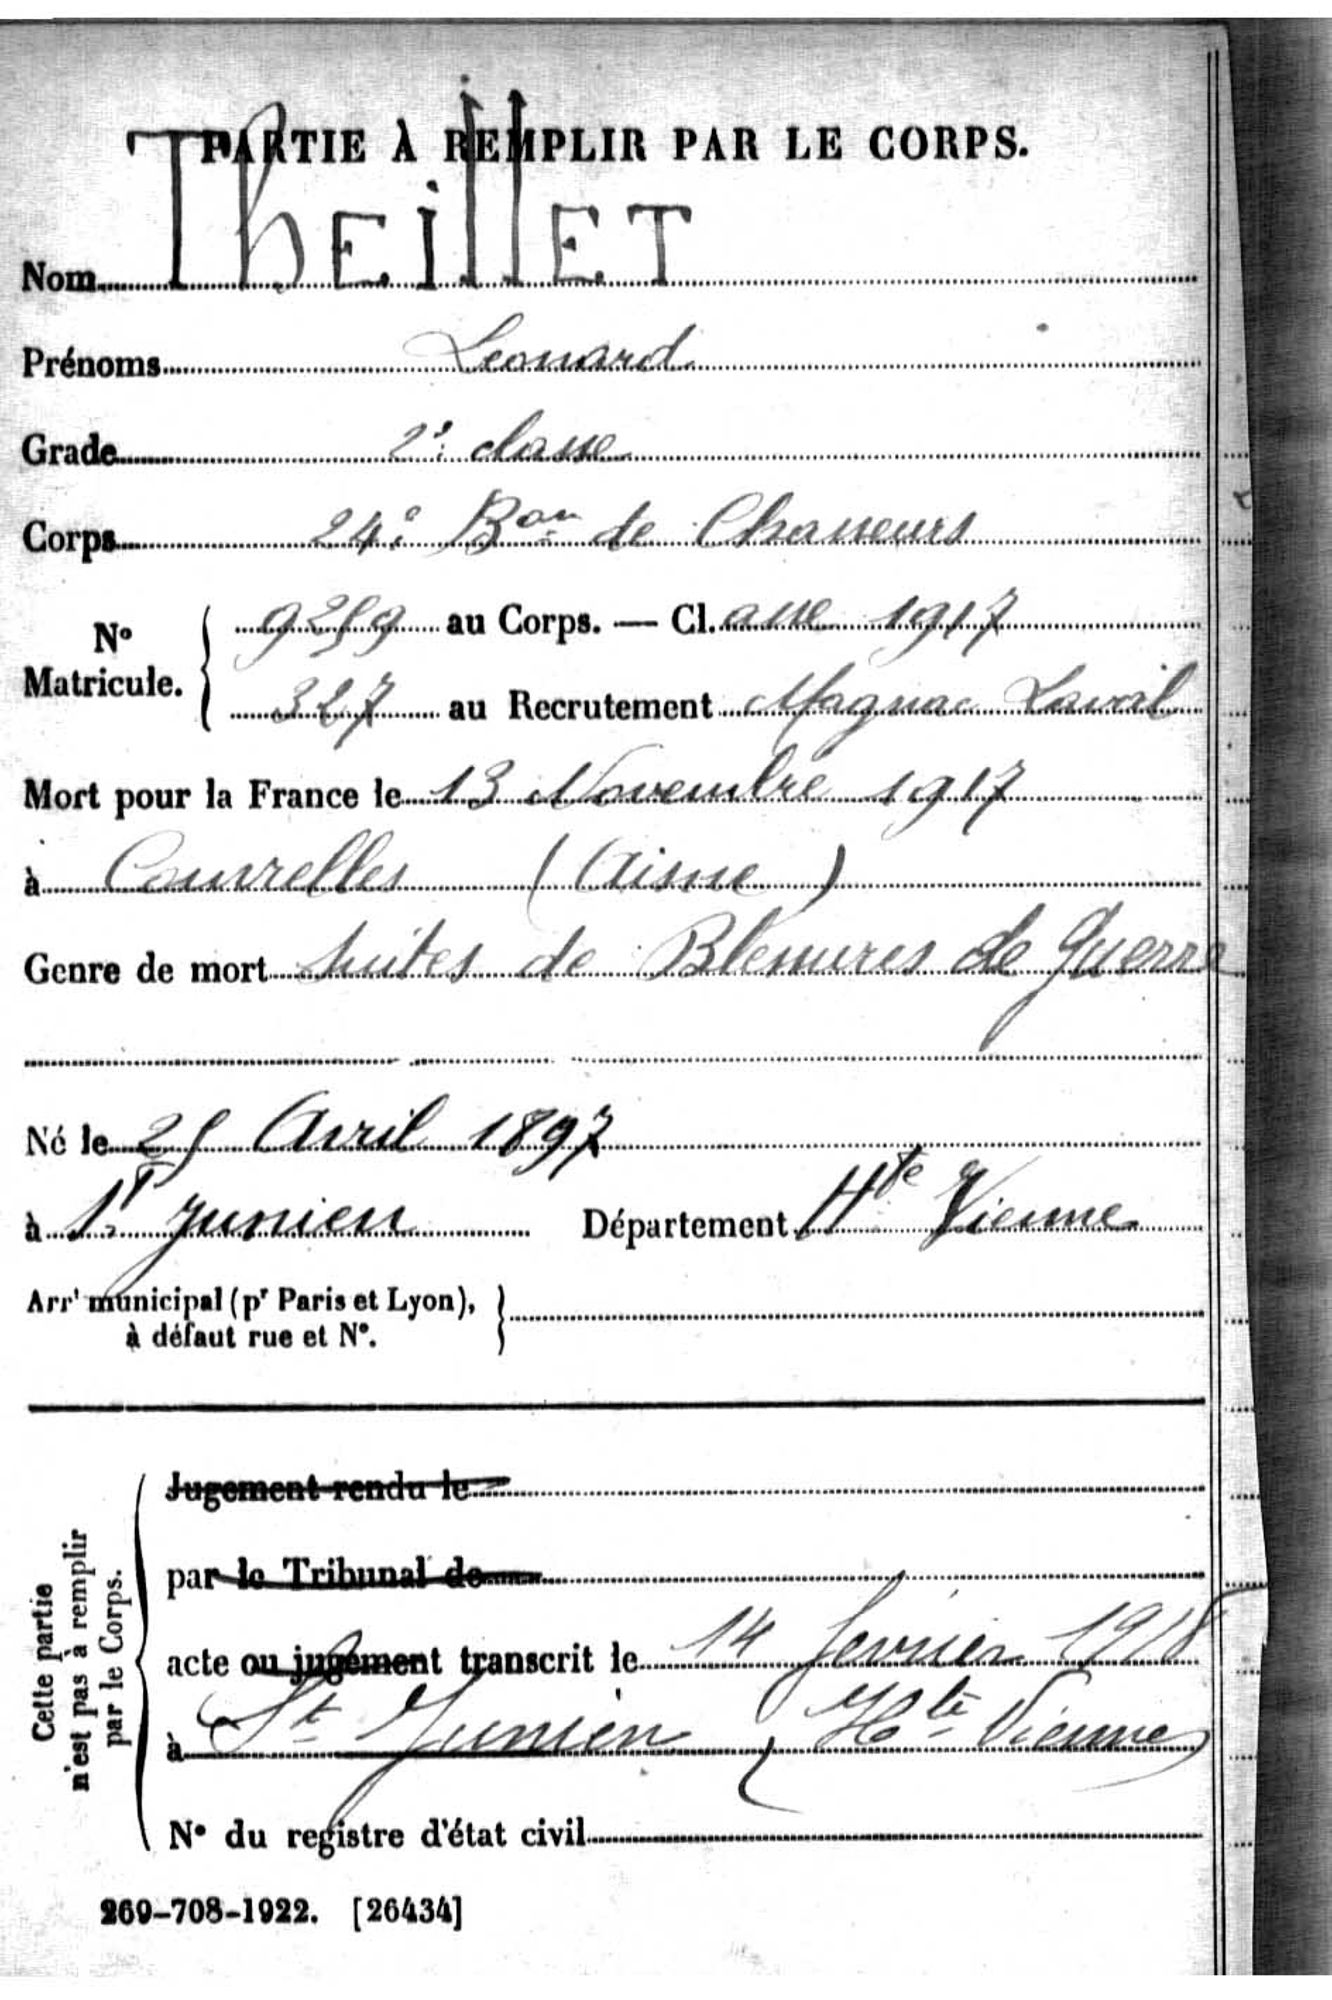 PARTIE À REMPLIR PAR LE CORPS.
Nom THEillET
Prénoms Leonard
Grade 2e classe
Corps 24e Bon de Chasseurs
No Matricule. 9259 au Corps. — Cl. asse 1917
327 au Recrutement Magnac Laval
Mort pour la France le 13 Novembre 1917
à Couvrelles (Aisne)
Genre de mort suites de Blessures de Guerre
Né le 25 Avril 1897
à St Junien Département Hte Vienne
Arrt municipal (pr Paris et Lyon), à défaut rue et No.
Cette partie n'est pas à remplir par le Corps.
Jugement rendu le
par le Tribunal de
acte ou jugement transcrit le 14 février 1918
à St Junien (Hte Vienne)
No du registre d'état civil
269-708-1922. [26434]